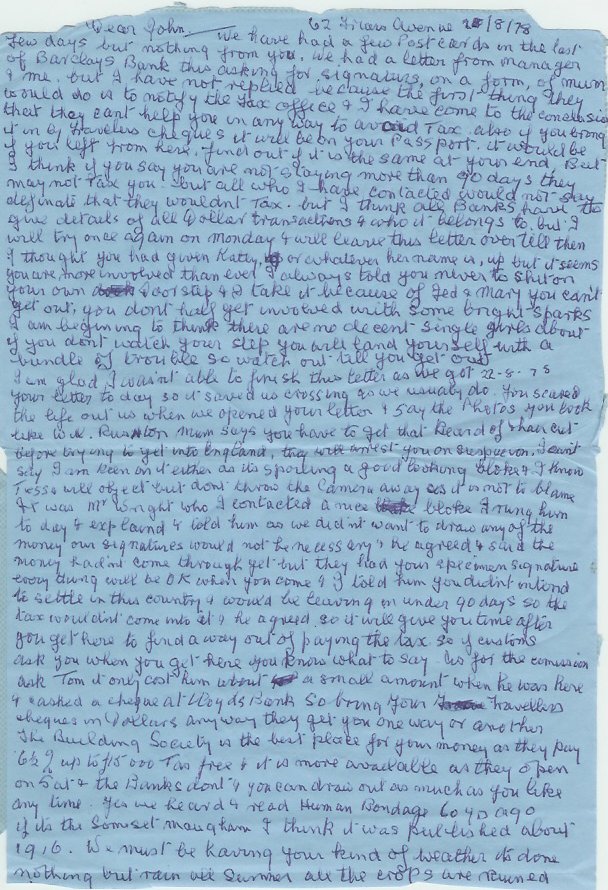 Dear John, 62 Friars Avenue 28/8/78
We have had a few Postcards in the last
few days but nothing from you. We had a letter from manager
of Barclays Bank this asking for signature, on a form, of mum
& me. but I have not replied because the first thing they
would do is to notify the Tax office & I have come to the conclusion
that they cant help you in any way to avoid Tax. also if you bring
it in by Travelers cheques it will be on your Passport. it would be
if you left from here. find out if it is the same at your end But
I think if you say you are not staying more than 90 days they
may not Tax you. but all who I have contacted would not say
definate that they wouldnt Tax. but I think all Banks have to
give details of all Dollar transactions & who it belongs to. but I
will try once again on monday & will leave this letter over till then
I thought you had given Katty, or whatever her name is, up but it seems
you are more involved than ever I always told you never to shit on
your own doorstep & I take it because of Jed & Mary you can't
get out, you dont half get involved with some bright sparks
I am beginning to think there are no decent single girls about
if you dont watch your step you will land yourself with a
bundle of trouble so watch out till you get out
I am glad I wasnt able to finish this letter as we got 22-8-78
your letter to day so it saved us crossing as we usualy do. You scared
the life out us when we opened your letter & say the Photos you look
like W.R. Mum says you have to get that Beard off & hair cut
before trying to get into England, they will arrest you on suspicion. I cant
say I am keen on it either as its spoiling a good looking bloke & I know
Tess will object but dont throw the Camera away as it is not to blame
It was Mr Wright who I contacted a nice bloke I rung him
to day & explaind & told him as we didnt want to draw any of the
money our signatures would not be necessary & he agreed & said the
money hadint come through yet but they had your specimen signature
every thing will be OK when you come & I told him you didnt intend
to settle in this country & would be leaving in under 90 days so the
tax wouldint come into it & he agreed so it will give you time after
you get here to find a way out of paying the tax so if customs
ask you when you get here you know what to say. as for the comission
ask Tom it only cost him about a small amount when he was here
& cashed a cheque at Lloyds Bank So bring your Travellers
cheques in Dollars anyway they get you one way or another
The Building Society is the best place for your money as they pay
6½% up to £15000 Tax free & it is more available as they open
on Sat & the Banks dont & you can draw out as much as you like
any time. Yes we heard & read Human Bondage 60 yrs ago
if its the Somerset maugham I think it was published about
1916. We must be having your kind of weather its done
nothing but rain all Summer all the crops are ruined